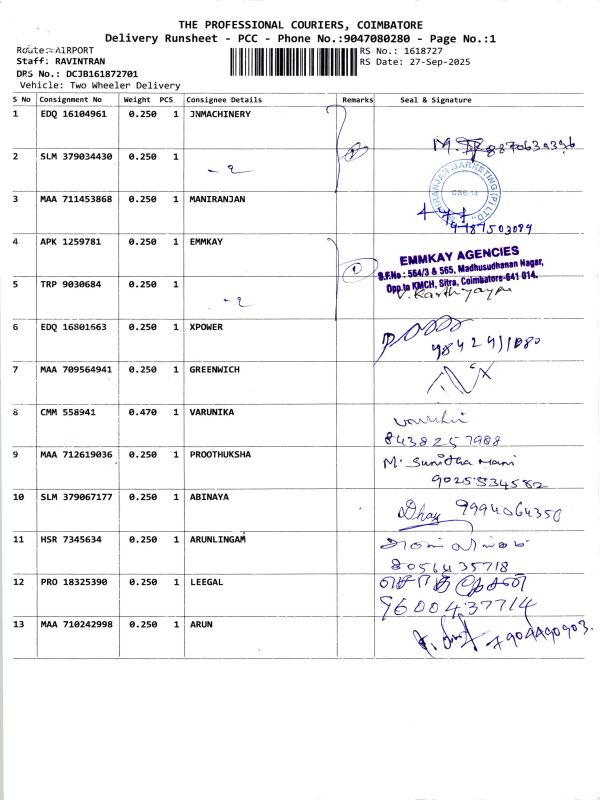 THE PROFESSIONAL COURIERS, COIMBATORE
Delivery Runsheet - PCC - Phone No.:9047080280 - Page No.:1
Route:- AIRPORT
RS No.: 1618727
Staff: RAVINTRAN
RS Date: 27-Sep-2025
DRS No.: DCJB161872701
Vehicle: Two Wheeler Delivery
S No Consignment No Weight PCS Consignee Details Remarks Seal & Signature
1 EDQ 16104961 0.250 1 JNMACHINERY
2 SLM 379034430 0.250 1 - 2 2
3 MAA 711453868 0.250 1 MANIRANJAN
NIRANJAN MARKETING (P) LTD.
CBE-14
9487503089
4 APK 1259781 0.250 1 EMMKAY 1
EMMKAY AGENCIES
S.F.No : 564/3 & 565, Madhusudhanan Nagar,
Opp.to KMCH, Sitra, Coimbatore-641 014.
5 TRP 9030684 0.250 1 - 2
V. Karthyayni
6 EDQ 16801663 0.250 1 XPOWER
7 MAA 709564941 0.250 1 GREENWICH
8 CMM 558941 0.470 1 VARUNIKA
8438257988
9 MAA 712619036 0.250 1 PROOTHUKSHA M. Sunitha Mani
9025534582
10 SLM 379067177 0.250 1 ABINAYA 9994064350
11 HSR 7345634 0.250 1 ARUNLINGAM
8056435718
12 PRO 18325390 0.250 1 LEEGAL
9600437714
13 MAA 710242998 0.250 1 ARUN